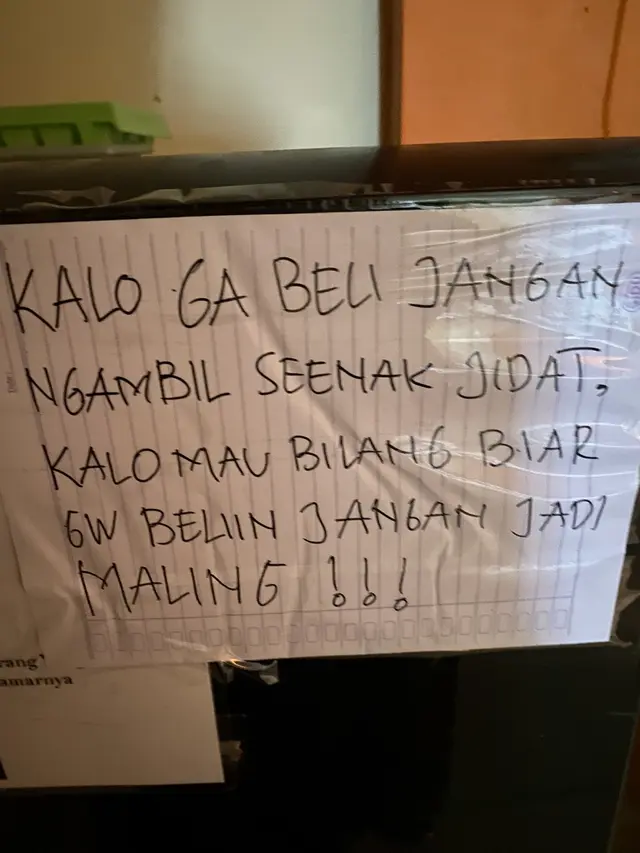 KALO GA BELI JANGAN
NGAMBIL SEENAK JIDAT,
KALO MAU BILANG BIAR
GW BELIIN JANGAN JADI
MALING !!!
rang'
amarnya